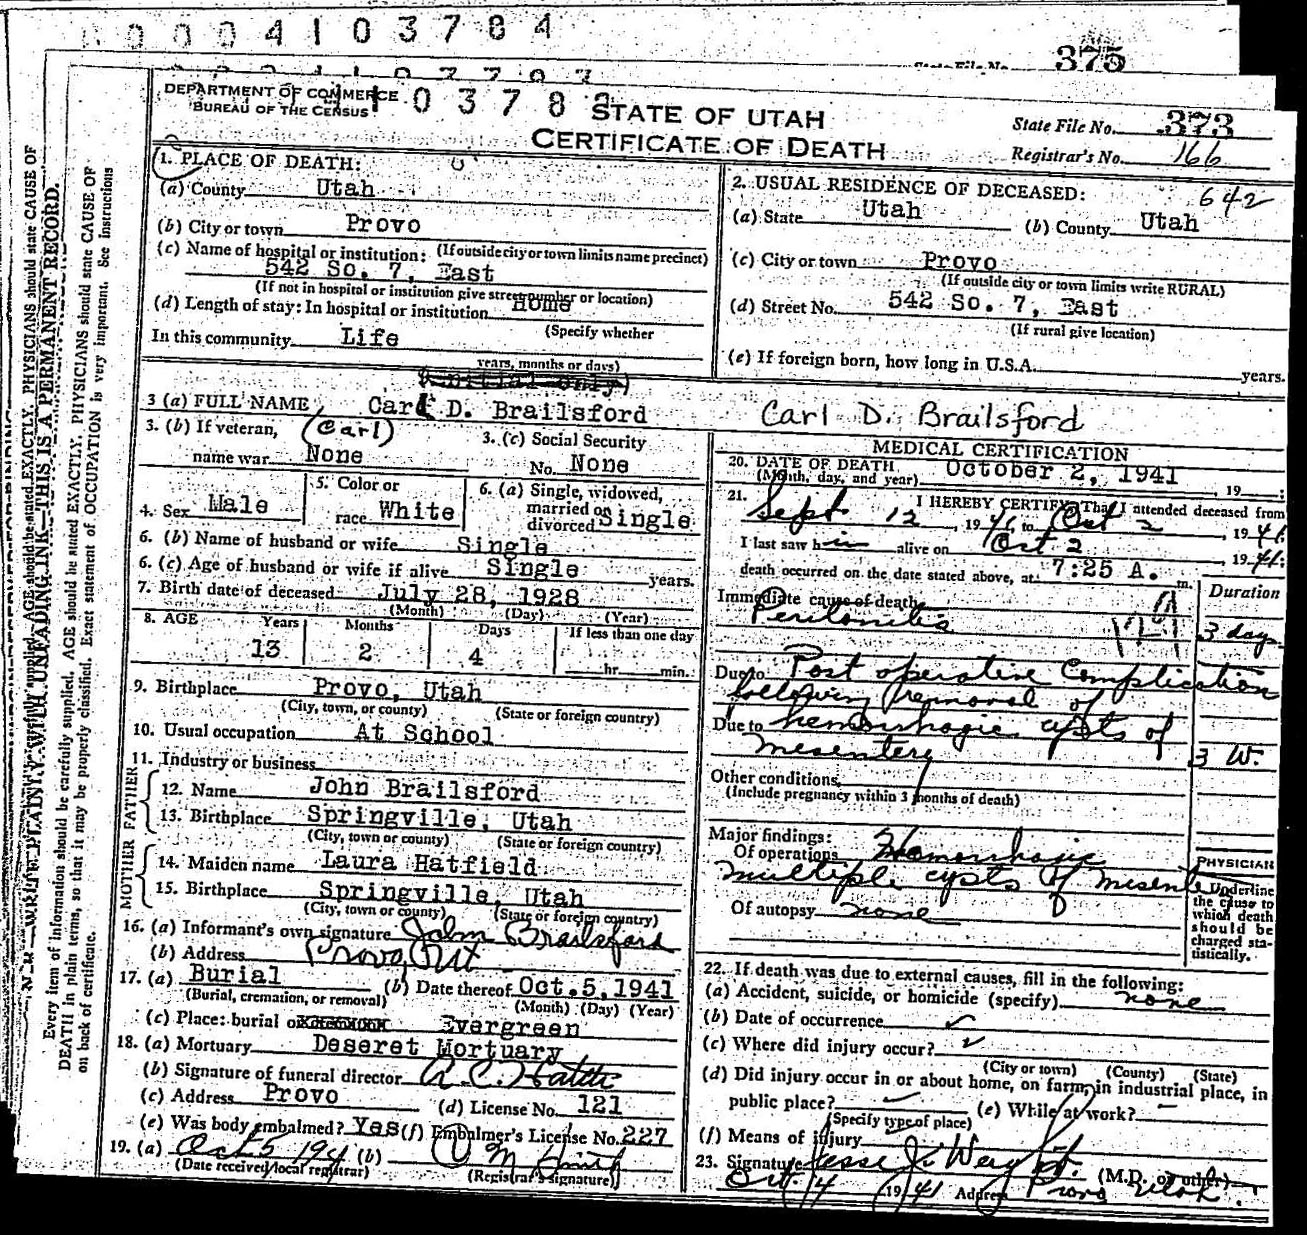 0 0 0 4 1 0 3 7 8 4
State File No. 375
DEPARTMENT OF COMMERCE
BUREAU OF THE CENSUS
STATE OF UTAH
CERTIFICATE OF DEATH
State File No. 373
Registrar's No. 166
1. PLACE OF DEATH:
(a) County Utah
(b) City or town Provo
(c) Name of hospital or institution: (If outside city or town limits name precinct)
542 So. 7, East
(If not in hospital or institution give street number or location)
(d) Length of stay: In hospital or institution Home
(Specify whether
In this community Life
years, months or days)
2. USUAL RESIDENCE OF DECEASED: 642
(a) State Utah (b) County Utah
(c) City or town Provo
(If outside city or town limits write RURAL)
(d) Street No. 542 So. 7, East
(If rural give location)
(e) If foreign born, how long in U.S.A. years.
(initial only)
3 (a) FULL NAME Carl D. Brailsford Carl D. Brailsford
3. (b) If veteran, (Carl)
name war None
3. (c) Social Security
No. None
4. Sex Male
5. Color or
race White
6. (a) Single, widowed,
married or
divorced Single
6. (b) Name of husband or wife Single
6. (c) Age of husband or wife if alive Single years.
7. Birth date of deceased July 28, 1928
(Month) (Day) (Year)
8. AGE Years Months Days If less than one day
13 2 4 hr. min.
9. Birthplace Provo, Utah
(City, town, or county) (State or foreign country)
10. Usual occupation At School
11. Industry or business
FATHER
12. Name John Brailsford
13. Birthplace Springville, Utah
(City, town or county) (State or foreign country)
MOTHER
14. Maiden name Laura Hatfield
15. Birthplace Springville, Utah
(City, town or county) (State or foreign country)
16. (a) Informant's own signature John Brailsford
(b) Address Provo, Ut
17. (a) Burial (b) Date thereof Oct. 5, 1941
(Burial, cremation, or removal) (Month) (Day) (Year)
(c) Place: burial or Evergreen
18. (a) Mortuary Deseret Mortuary
(b) Signature of funeral director
(c) Address Provo (d) License No. 121
(e) Was body embalmed? Yes (f) Embalmer's License No. 227
19. (a) Oct 5 194 (b)
(Date received local registrar) (Registrar's signature)
MEDICAL CERTIFICATION
20. DATE OF DEATH
(Month, day, and year) October 2, 1941, 19
21. I HEREBY CERTIFY, That I attended deceased from
Sept. 12, 1941, to Oct 2, 1941
I last saw him alive on Oct. 2 1941:
death occurred on the date stated above, at 7:25 A. m.
Immediate cause of death Duration
Peritonitis 3 day
Due to Post operative Complication
following removal of
Due to hemorrhagic cysts of
mesentery 3 W.
Other conditions
(Include pregnancy within 3 months of death)
Major findings:
Of operations Hemorrhagic
multiple cysts of mesente
Of autopsy none
PHYSICIAN
Underline
the cause to
which death
should be
charged sta-
tistically.
22. If death was due to external causes, fill in the following:
(a) Accident, suicide, or homicide (specify) none
(b) Date of occurrence
(c) Where did injury occur?
(City or town) (County) (State)
(d) Did injury occur in or about home, on farm, in industrial place, in
public place? (e) While at work?
(Specify type of place)
(f) Means of injury
23. Signature Jesse J. Weight (M.D. or other)
Oct. 4 1941 Address Provo Utah.
N. B.—WRITE PLAINLY WITH UNFADING INK—THIS IS A PERMANENT RECORD.
Every item of information should be carefully supplied. AGE should be stated EXACTLY. PHYSICIANS should state CAUSE OF
DEATH in plain terms, so that it may be properly classified. Exact statement of OCCUPATION is very important. See instructions
on back of certificate.